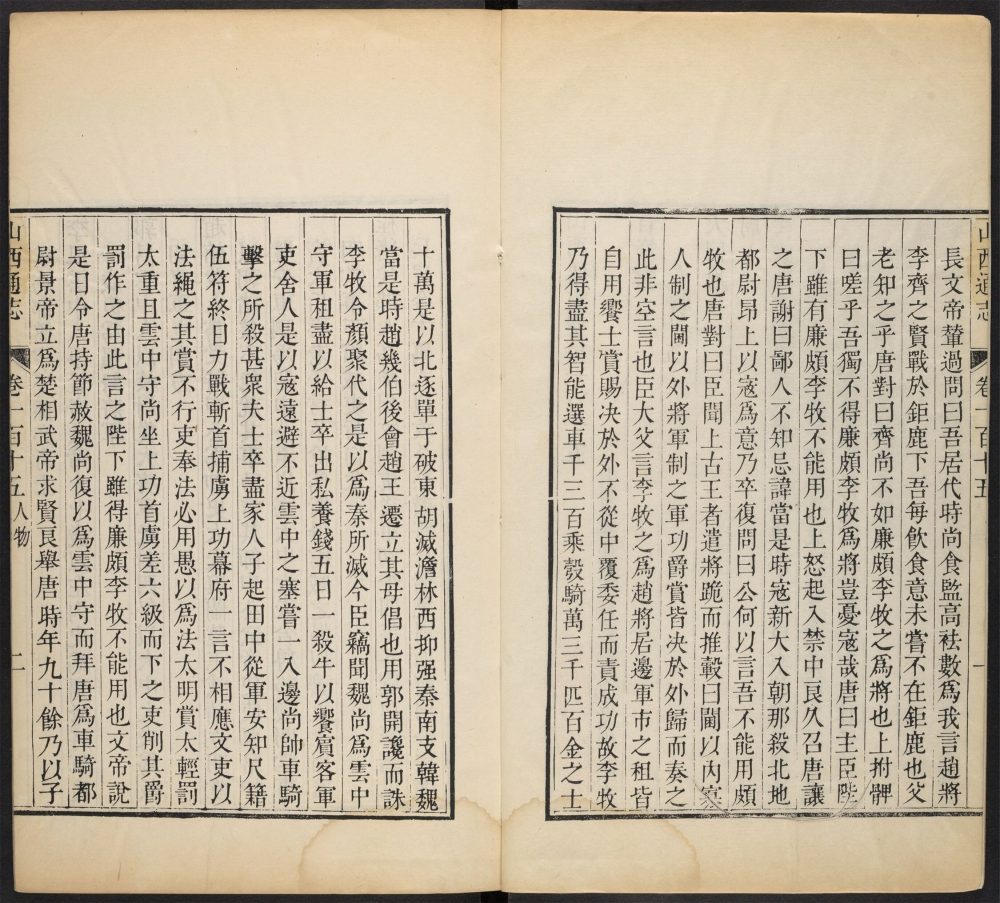 山西通志 卷一百十五 一
長文帝輦過問曰吾居代時尚食監高袪數爲我言趙將
李齊之賢戰於鉅鹿下吾每飲食意未嘗不在鉅鹿也父
老知之乎唐對曰齊尚不如廉頗李牧之爲將也上拊髀
曰嗟乎吾獨不得廉頗李牧爲將豈憂寇哉唐曰主臣陛
下雖有廉頗李牧不能用也上怒起入禁中良久召唐讓
之唐謝曰鄙人不知忌諱當是時寇新大入朝那殺北地
都尉昂上以寇爲意乃卒復問曰公何以言吾不能用頗
牧也唐對曰臣聞上古王者遣將跪而推轂曰閫以內寡
人制之閫以外將軍制之軍功爵賞皆決於外歸而奏之
此非空言也臣大父言李牧之爲趙將居邊軍市之租皆
自用饗士賞賜決於外不從中覆委任而責成功故李牧
乃得盡其智能選車千三百乘彀騎萬三千匹百金之士
十萬是以北逐單于破東胡滅澹林西抑强秦南支韓魏
當是時趙幾伯後會趙王遷立其母倡也用郭開讒而誅
李牧令顏聚代之是以爲秦所滅今臣竊聞魏尚爲雲中
守軍租盡以給士卒出私養錢五日一殺牛以饗賓客軍
吏舍人是以寇遠避不近雲中之塞嘗一入邊尚帥車騎
擊之所殺甚衆夫士卒盡家人子起田中從軍安知尺籍
伍符終日力戰斬首捕虜上功幕府一言不相應文吏以
法繩之其賞不行吏奉法必用愚以爲法太明賞太輕罰
太重且雲中守尚坐上功首虜差六級而下之吏削其爵
罰作之由此言之陛下雖得廉頗李牧不能用也文帝說
是日令唐持節赦魏尚復以爲雲中守而拜唐爲車騎都
尉景帝立爲楚相武帝求賢良舉唐時年九十餘乃以子
山西通志 卷一百十五 人物 二